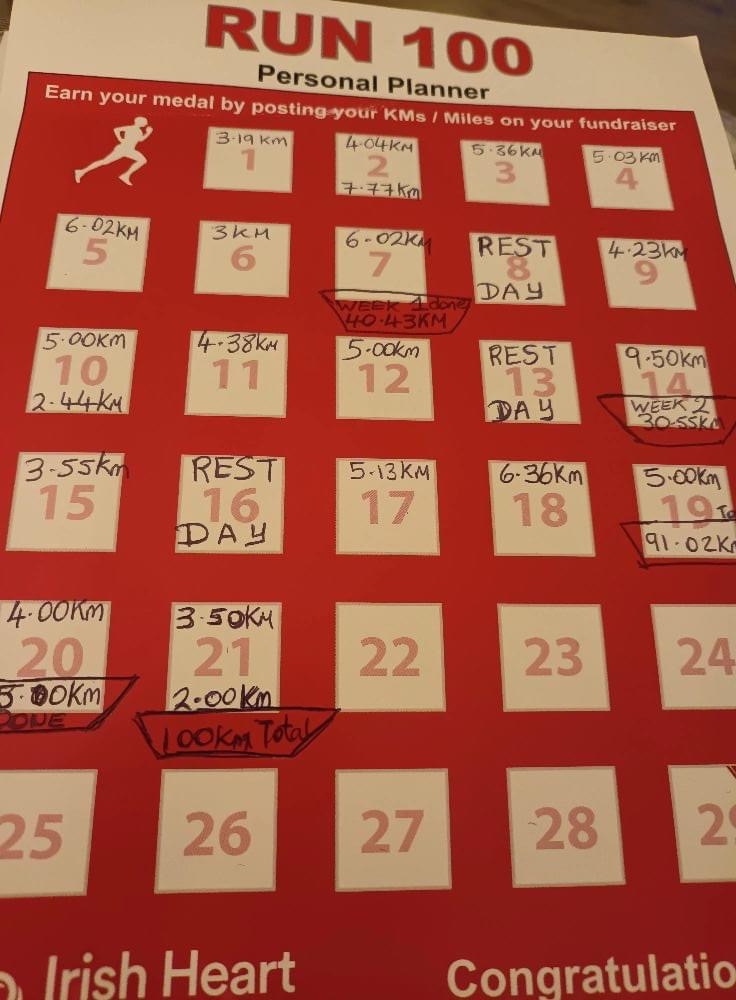 RUN 100
Personal Planner
Earn your medal by posting your KMs / Miles on your fundraiser
3.19 Km
1
4.04KM
2
7.77Km
5.36KM
3
5.03 KM
4
6.02KM
5
3KM
6
6.02KM
7
WEEK 1 done
40.43KM
REST
8
DAY
4.23KM
9
5.00km
10
2.44KM
4.38KM
11
5.00km
12
REST
13
DAY
9.50km
14
WEEK 2
30.55KM
3.55km
15
REST
16
DAY
5.13KM
17
6.36Km
18
5.00km
19
91.02K
4.00Km
20
5.00Km
DONE
3.50KM
21
2.00Km
100Km Total
22
23
24
25
26
27
28
Irish Heart
Congratulatio